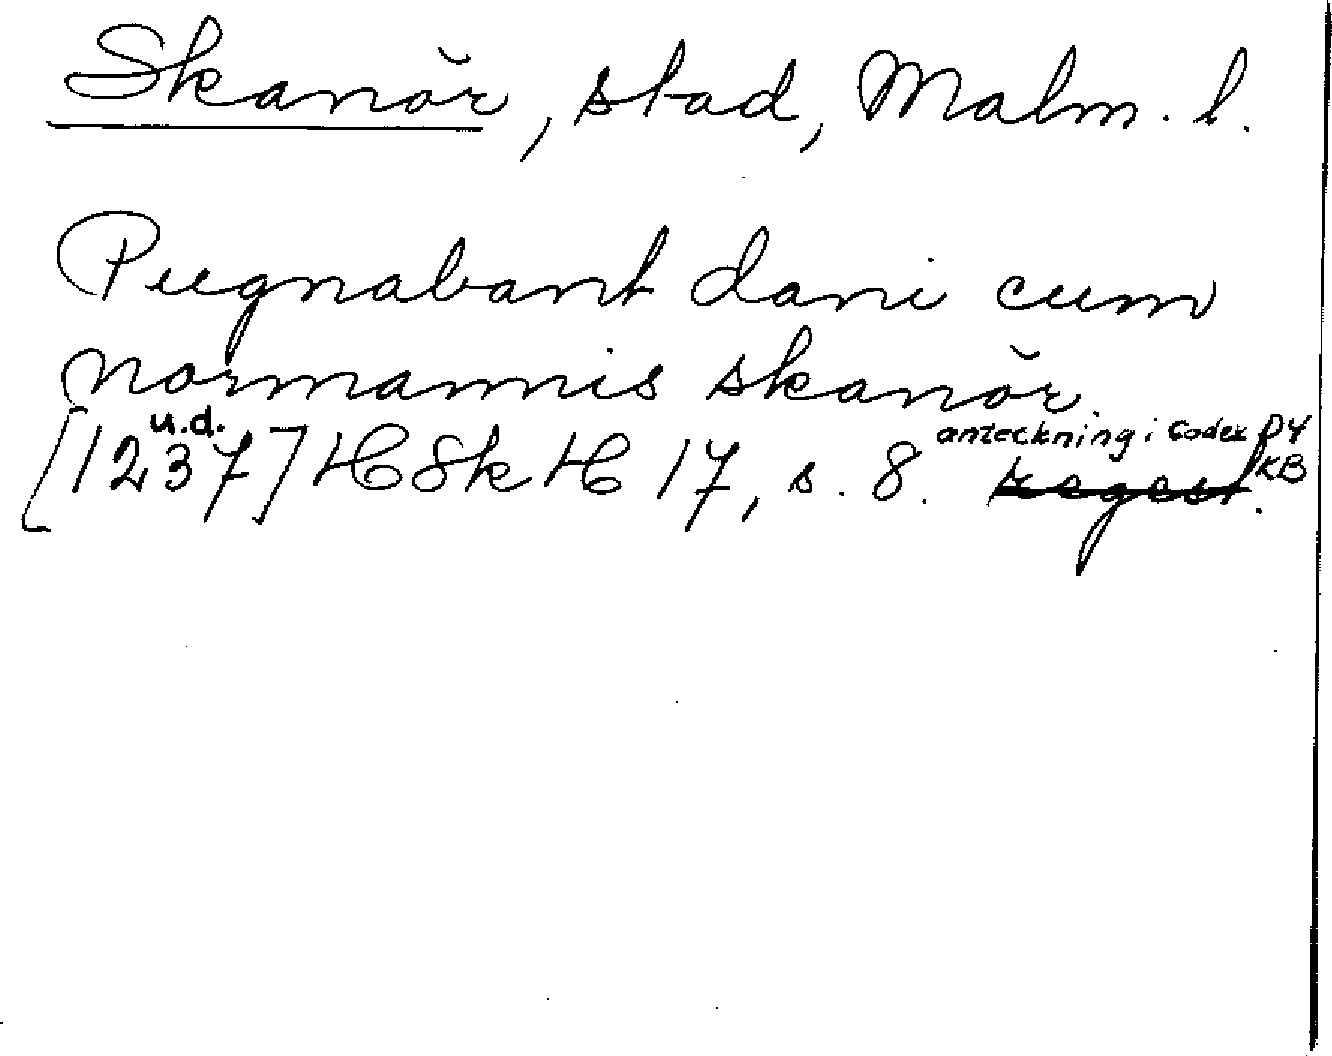 Skanör, stad, Malm. l.
Pugnabant dani cum
normannis skanör.
u.d. anteckning i Codex D4
[1237] HSkH 17, s. 8. regest. KB